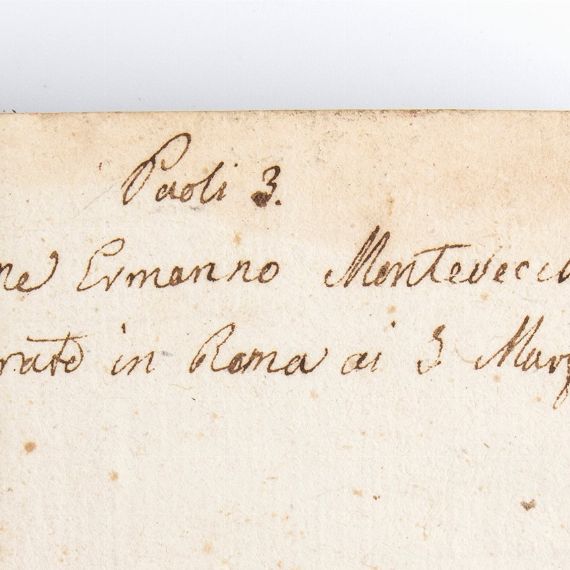 Paoli 3.
ne Ermanno Montevecch
rato in Roma ai 3 Marz